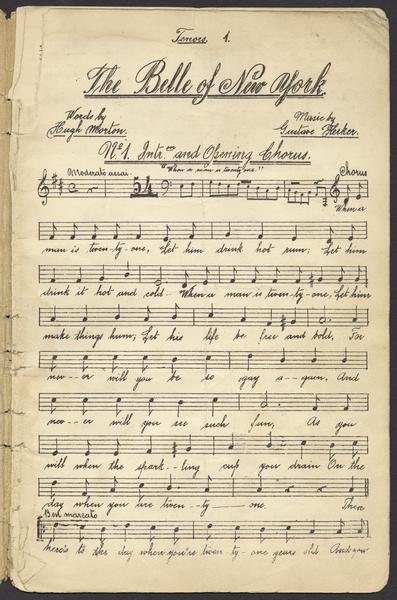 Tenors. 1.
The Belle of New York.
Words by
Hugh Morton.
Music by
Gustave Kerker.
No. 1. Intr. and Opening Chorus.
"When a man is twenty one."
Moderato assai.
54
Chorus
When a
man is twen-ty-one, Let him drink hot rum; Let him
drink it hot and cold - When a man is twen-ty-one, Let him
make things hum; Let his life be free and bold, For
nev--er will you be so gay a--gain, And
nev--er will you see such fun, As you
will when the spark--ling cup you drain On the
day when you are twen--ty — one. There
Ben marcato
there's to the day when you're twen ty-one years old And you